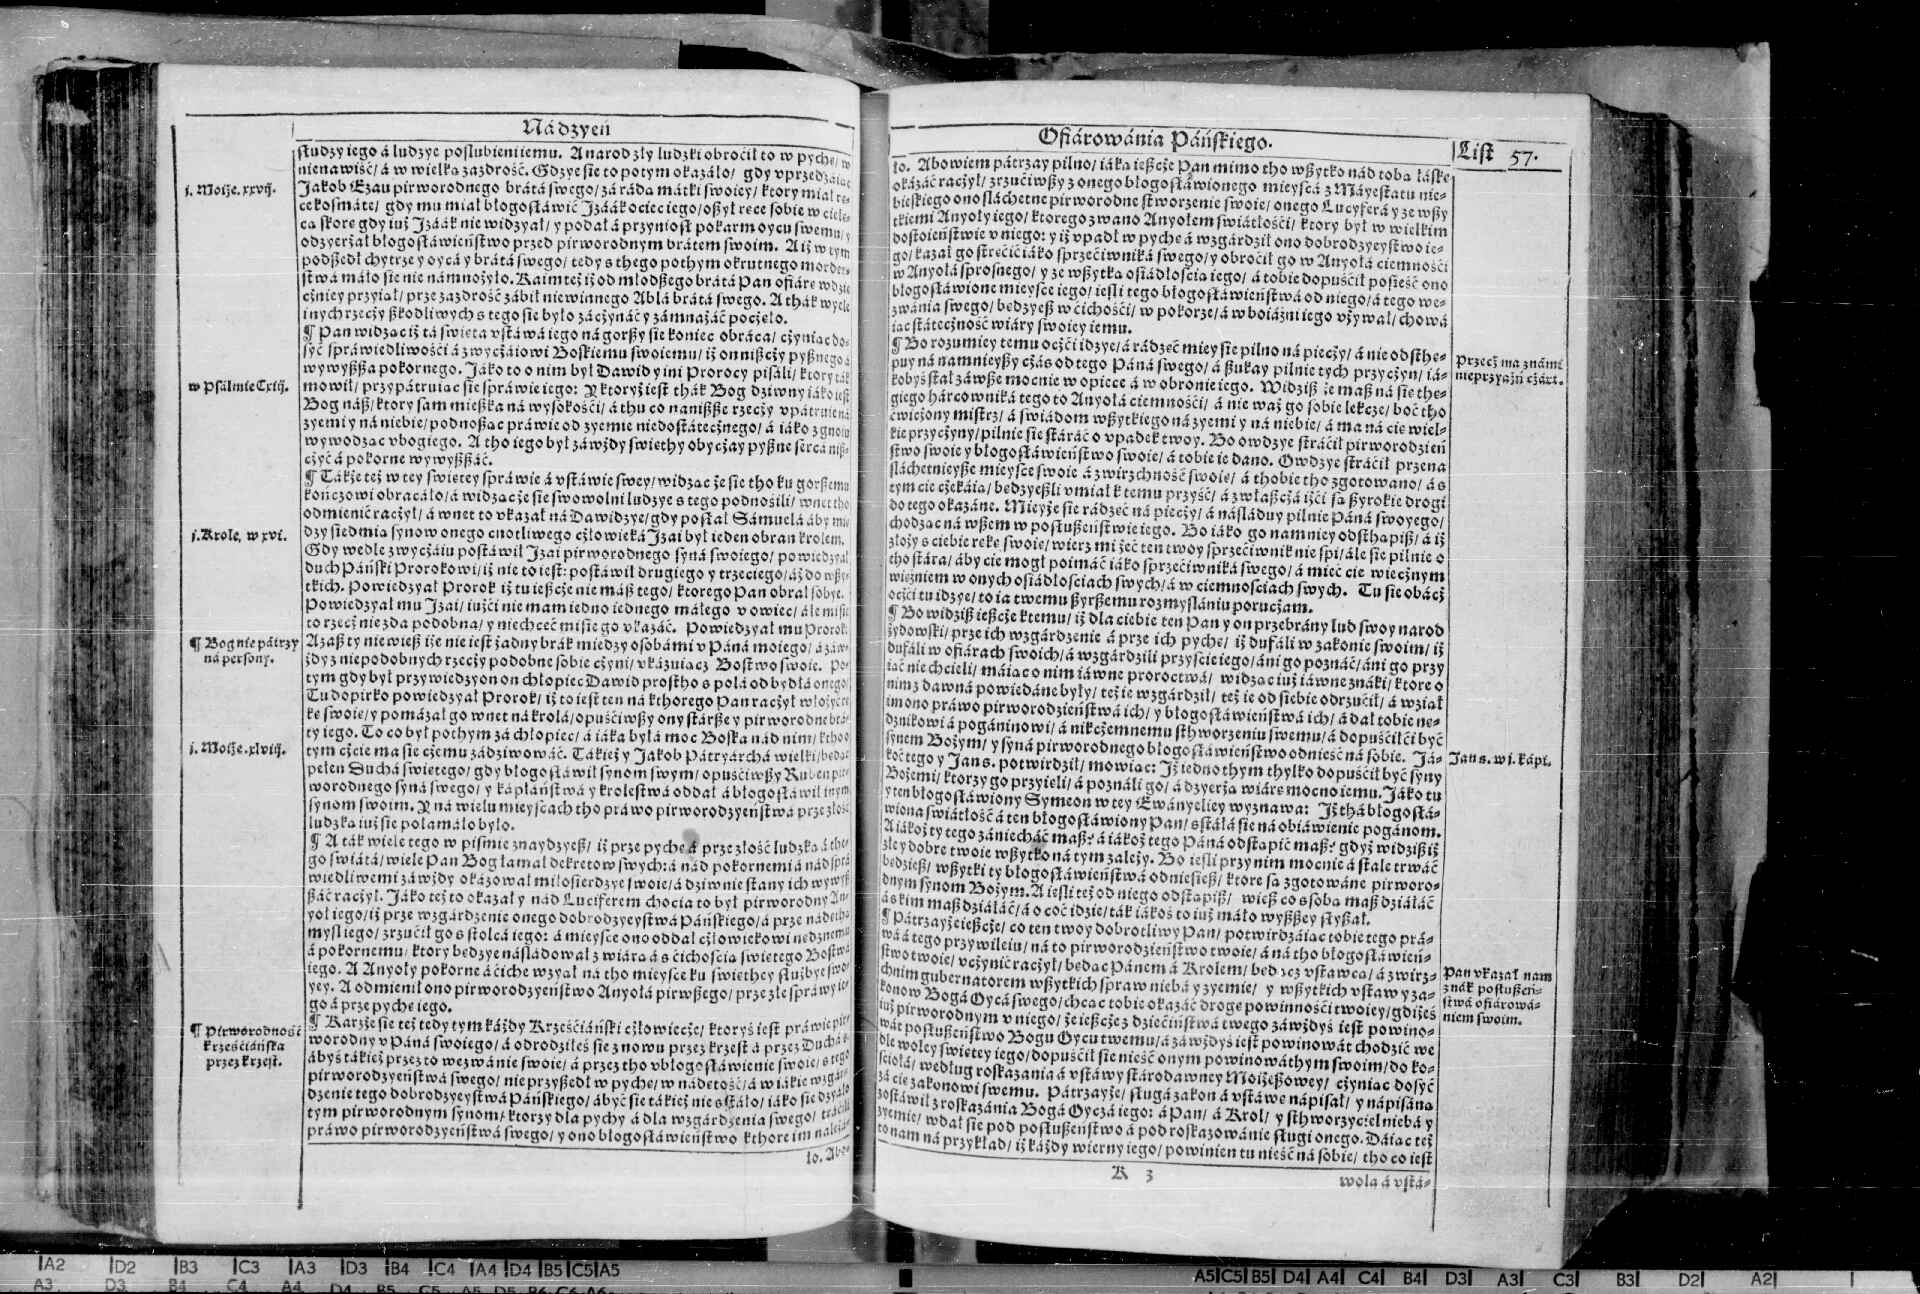 Ná dzyeń
studzy iego á ludzye poslubieni iemu. A narod zly ludzki obrocił to w pyche/ w
nienawiść/ á w wielka zazdrość. Gdzye sie to potym okazáło/ gdy vprzedzáiac
j. Moiże. xxvij.
Jakob Ezau pirworodnego brátá swego/ zá rádá mátki swoiey/ ktory miał re-
ce kosmáte/ gdy mu miał błogosłáwić Jzáák ociec iego/ oszył rece sobie w ciele-
ca skore gdy iuż Jzáák nie widzyał/ y podał á przyniosł pokarm oycu swemu/ y
odzyerżał błogosłáwieństwo przed pirworodnym brátem swoim. A iż w tym
podszedł chytrze y oycá y brátá swego/ tedy s thego pothym okrutnego morder-
stwá máło sie nie námnożyło. Kaim też iż od młodszego brátá Pan ofiáre wdzie
cżniey przyiał/ prze zazdrość zábił niewinnego Ablá brátá swego. A thák wyele
inych rzecży szkodliwych s tego sie było zácżynáć y zámnażáć pocżęło.
¶ Pan widzac iż tá swieta vstáwá iego ná gorszy sie koniec obráca/ cżyniac do-
syć spráwiedliwości á zwycżáiowi Boskiemu swoiemu/ iż on niszcży pysznego á
wywyszsza pokornego. Jáko to o nim był Dawid y ini Prorocy pisáli/ ktory ták
w Psálmie Cxiij.
mowił/ przypátruiac sie spráwie iego: Y ktoryż iest thák Bog dziwny iáko iest
Bog nász/ ktory sam mieszka ná wysokości/ á thu co nanisze rzecży vpátruie ná
zyemi y ná niebie/ podnosząc práwie od zyemie niedostátecżnego/ á iáko z gnoiu
wywodzac vbogiego. A tho iego był záwżdy swiethy obycżay pyszne sercá nisz-
cżyć á pokorne wywyszszáć.
¶ Tákże też w tey swietey spráwie á vstáwie swey/ widzac że sie tho ku gorszemu
końcżowi obracáło/ á widzac że sie swowolni ludzye s tego podnosili/ wnet tho
odmienić racżył/ á wnet to vkazał ná Dawidzye/ gdy posłał Sámuelá áby mie
j. Krole. w xvi.
dzy siedmia synow onego cnotliwego cżłowieká Jzái był ieden obran krolem.
Gdy wedle zwycżáiu postáwił Jzái pirworodnego syná swoiego/ powiedzyał
duch Páński Prorokowi/ iż nie to iest: postáwił drugiego y trzeciego/ áż do wszy-
tkich. Powiedzyał Prorok iż tu ieszcże nie mász tego/ ktorego Pan obrał sobye.
Powiedzyał mu Jzái/ iużci nie mam iedno iednego máłego v owiec/ ále mi sie
to rzecż nie zda podobna/ y niechceć mi sie go vkázáć. Powiedzyał mu Prorok:
¶ Bog nie pátrzy
ná persony.
Azasz ty nie wiesz iże nie iest żadny brák miedzy osobámi v Páná moiego/ á záw-
żdy z niepodobnych rzecży podobne sobie cżyni/ vkázuiacż Bostwo swoie. Po-
tym gdy był przywiedzyon on chłopiec Dawid prostho s polá od bydłá onego/
Tu dopirko powiedzyał Prorok/ iż to iest ten ná kthorego Pan racżył włożyć re
ke swoie/ y pomázał go wnet ná krolá/ opuściwszy ony stársze y pirworodne brá-
ty iego. To co był pothym zá chłopiec/ á iáka byłá moc Boska nád nim/ kthoo
j. Moiże. xlviij.
tym cżcie ma sie cżemu zádziwowáć. Tákież y Jakob Pátryárchá wielki/ bedac
pełen Duchá swietego/ gdy błogosłáwił synom swym/ opuściwszy Ruben pir-
worodnego syná swego/ y kápłáństwá y krolestwá oddał á błogosłáwił inym
synom swoim. Y ná wielu mieyscach tho práwo pirworodzyeństwá prze złość
ludzka iuż sie połamáło było.
¶ A ták wiele tego w piśmie znaydzyesz/ iż prze pyche á prze złość ludzka á the-
go swiátá/ wiele Pan Bog łamał dekretow swych: á nád pokornemi á nád sprá
wiedliwemi záwżdy okázował miłosierdzye swoie/ á dziwnie stany ich wywys-
száć racżył. Jáko też to okazał y nád Luciferem chocia to był pirworodny An-
yoł iego/ iż prze wzgárdzenie onego dobrodzyeystwá Páńskiego/ á prze nádetha
mysl iego/ zrzucił go s stolcá iego: á mieysce ono oddał cżłowiekowi nedznemu
á pokornemu/ ktory bedzye násládował z wiára á s cichoscia swietego Bostwá
iego. A Anyoły pokorne á ciche wzyał ná tho mieysce ku swiethey służbye swo-
yey. A odmienił ono pirworodzyeństwo Anyołá pirwszego/ prze złe spráwy ie-
go á prze pyche iego.
¶ Pirworodność
krześciáńska
przez krzest.
¶ Karzże sie też tedy tym káżdy Krześciáński cżłowiecże/ ktoryś iest práwie pir-
worodny v Páná swoiego/ á odrodziłeś sie z nowu przez krzest á przez Duchá s.
ábyś tákież przez to wezwánie swoie/ á przez tho vbłogosłáwienie swoie/ s tego
pirworodzyeństwá swego/ nie przyszedł w pyche/ w nádetość/ á w iákie wzgár-
dzenie tego dobrodzyeystwá Páńskiego/ ábyć sie tákież nie sstáło/ iáko sie dzyało
tym pirworodnym synom/ ktorzy dla pychy á dla wzgárdzenia swego/ trácili
práwo pirworodzyeństwá swego/ y ono błogosłáwieństwo kthore im należá-
ło. Abo-
Ofiárowánia Páńskiego.
List 57.
ło. Abowiem pátrzay pilno/ iáka ieszcże Pan mimo tho wszytko nád toba łáske
okázáć racżył/ zrzuciwszy z onego błogosłáwionego mieyscá z Máyestatu nie-
bieskiego ono sláchetne pirworodne stworzenie swoie/ onego Lucyferá y ze wszy
tkiemi Anyoły iego/ ktorego zwano Anyołem swiátłości/ ktory był w wielkim
dostoieństwie v niego: y iż vpadł w pyche á wzgárdził ono dobrodzyeystwo ie-
go/ kazał go strecić iáko sprzeciwniká swego/ y obrocił go w Anyołá ciemności
w Anyołá sprosnego/ y ze wszytka osiádłoscia iego/ á tobie dopuścił posieść ono
błogosłáwione mieysce iego/ iesli tego błogosłáwieństwá od niego/ á tego we-
zwánia swego/ bedzyesz w cichości/ w pokorze/ á w boiáźni iego vżywał/ chowá
iac státecżność wiáry swoiey iemu.
Przecż ma známi
nieprzyaźń cżárt.
¶ Bo rozumiey temu ocżći idzye/ á rádzeć miey sie pilno ná piecży/ á nie odsthe-
puy ná namnieyszy cżás od tego Páná swego/ á szukay pilnie tych przycżyn/ iá-
kobyś stał záwsze mocnie w opiece á w obronie iego. Widzisz że masz ná sie the-
giego hárcowniká tego to Anyołá ciemności/ á nie waż go sobie lekcże/ boć tho
ćwicżony mistrz/ á swiádom wszytkiego ná zyemi y ná niebie/ á ma ná cie wiel-
kie przycżyny/ pilnie sie stáráć o vpadek twoy. Bo owdzye strácił pirworodzień
stwo swoie y błogosłáwieństwo swoie/ á tobie ie dano. Owdzye strácił przena
sláchetnieysze mieysce swoie á zwirzchność swoie/ á thobie tho zgotowano/ á s
tym cie cżekáia/ bedzyeszli vmiał k temu przyść/ á zwłaszcżá iżći sa szyrokie drogi
do tego okazáne. Mieyże sie rádzeć ná piecży/ á násláduy pilnie Páná swoyego/
chodzac ná wszem w posłuszeństwie iego. Bo iáko go namniey odsthapisz/ á iż
złoży s ciebie reke swoie/ wierz mi żeć ten twoy sprzeciwnik nie spi/ ále sie pilnie o
tho stára/ áby cie mogł poimáć iáko sprzeciwniká swego/ á mieć cie wiecżnym
wieźniem w onych osiádłosciach swych/ á w ciemnosciach swych. Tu sie obácż
ocżći tu idzye/ to ia twemu szyrszemu rozmyslániu porucżam.
¶ Bo widzisz ieszcże ktemu/ iż dla ciebie ten Pan y on przebrány lud swoy narod
żydowski/ prze ich wzgárdzenie á prze ich pyche/ iż dufáli w zakonie swoim/ iż
dufáli w ofiárach swoich/ á wzgárdzili przyscie iego/ áni go poznáć/ áni go przy
iać nie chcieli/ máiac o nim iáwne proroctwá/ widzac iuż iáwne znáki/ ktore o
nim z dawná powiedáne były/ też ie wzgárdził/ też ie od siebie odrzucił/ á wział
im ono práwo pirworodzieństwá ich/ y błogosłáwieństwá ich/ á dał tobie ne-
dznikowi á pogáninowi/ á nikcżemnemu sthworzeniu swemu/ á dopuścilci być
synem Bożym/ y syná pirworodnego błogosłáwieństwo odnieść ná sobie. Já-
Jan s. w j. kápi.
koć tego y Jan s. potwirdził/ mowiac: Jż iedno thym thylko dopuścił być syny
Bożemi/ ktorzy go przyieli/ á poználi go/ á dzyerża wiáre mocno iemu. Jáko tu
y ten błogosłáwiony Symeon w tey Ewányeliey wyznawa: Jż thá błogosłá-
wiona swiátłość á ten błogosłáwiony Pan/ sstáłá sie ná obiáwienie pogánom.
A iákoż ty tego zániecháć masz? á iákoż tego Páná odstapić masz? gdyż widzisz iż
złe y dobre twoie wszytko ná tym zależy. Bo iesli przy nim mocnie á stale trwáć
bedziesz/ wszytki ty błogosłáwieństwá odniesiesz/ ktore sa zgotowáne pirworo-
dnym synom Bożym. A iesli też od niego odstapisz/ wiesz co s soba masz działáć
á s kim masz działáć/ á o coć idzie/ ták iákoś to iuż máło wyszszey słyszał.
¶ Pátrzayże ieszcże/ co ten twoy dobrotliwy Pan/ potwirdzáiac tobie tego prá-
wá á tego przywileiu/ ná to pirworodzieństwo twoie/ á ná tho błogosłáwień-
stwo twoie/ vcżynić racżył/ bedac Pánem á Krolem/ bedac vstawca/ á zwirz-
Pan vkazał nam
znák posłuszeń-
stwá ofiárowá-
niem swoim.
chnim gubernatorem wszytkich spraw niebá y zyemie/ y wszytkich vstaw y za-
konow Bogá Oycá swego/ chcac tobie okázáć droge powinności twoiey/ gdiżeś
iuż pirworodnym v niego/ że ieszcże z dziecińśtwá twego záwżdyś iest powino-
wát posłuszeństwo Bogu Oycu twemu/ á záwżdyś iest powinowát chodzić we
dle woley swietey iego/ dopuścił sie nieść onym powinowáthym swoim/ do ko-
scioła/ według roskazánia á vstáwy stárodawney Moiżeszowey/ cżyniac dosyć
zá cie zakonowi swemu. Pátrzayże/ sługá zakon á vstáwe nápisał/ y nápisána
zostáwił z roskazánia Bogá Oycżá iego: á Pan/ á Krol/ y sthworzyciel niebá y
zyemie/ wdał sie pod posłuszeństwo á pod roskazowánie sługi onego. Dáiac też
to nam ná przykład/ iż káżdy wierny iego/ powinien tu nieść ná sobie/ tho co iest
K 3
wola á vstá-
A2 D2 B3 C3 A3 D3 B4 C4 A4 D4 B5 C5 A5
A5 C5 B5 D4 A4 C4 B4 D3 A3 C3 B3 D2 A2
A3 D3 B4 C4 A4 D4 B5 C5 A5 D5 B6 C6 A6